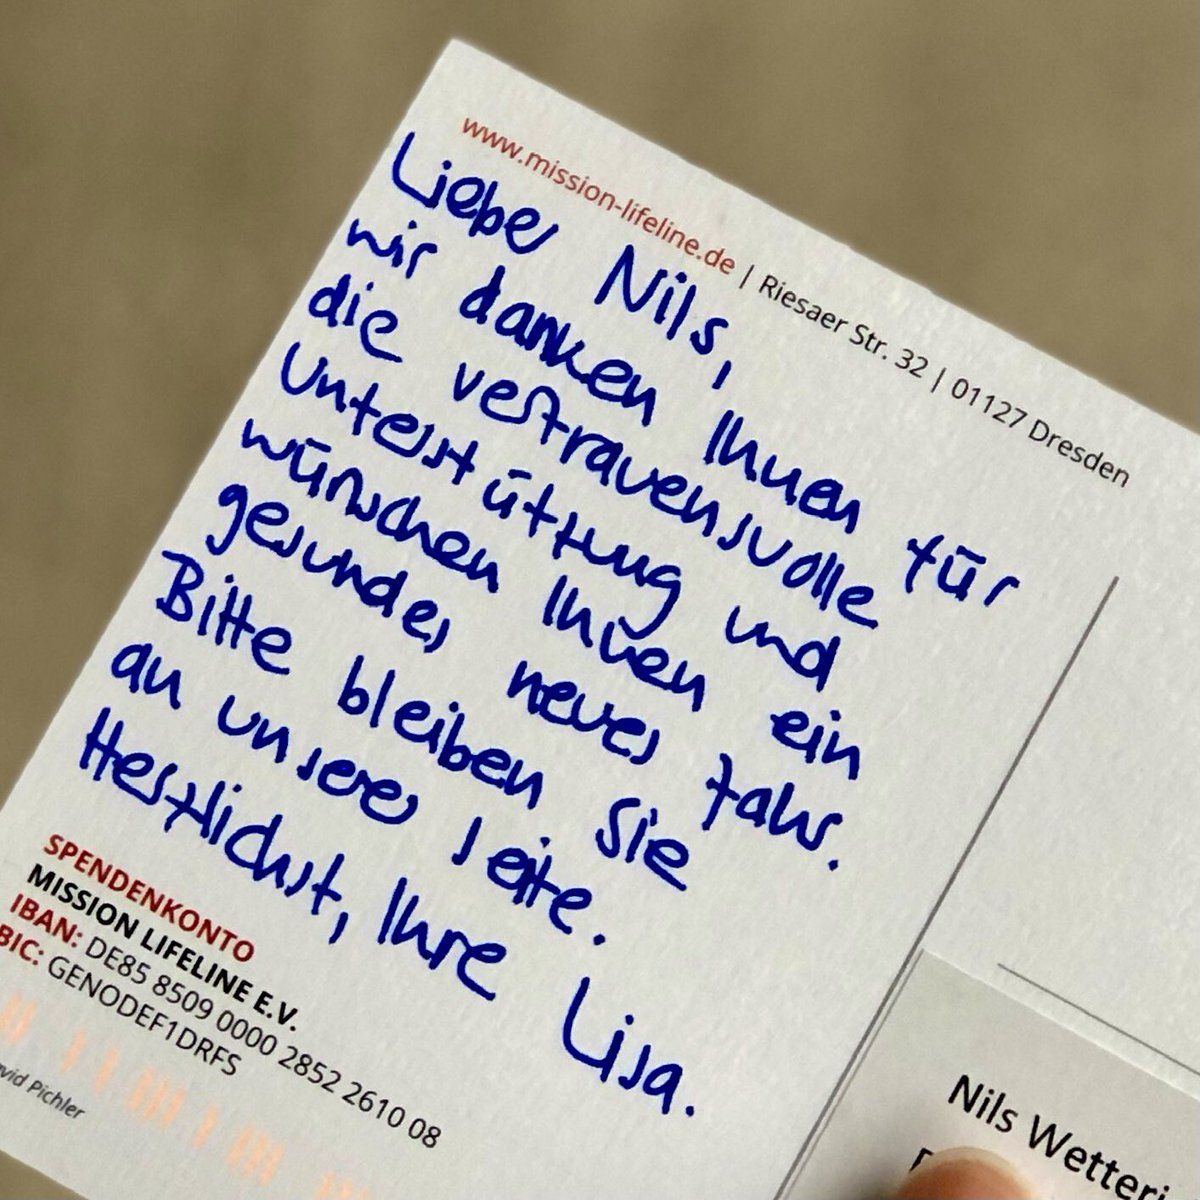 www.mission-lifeline.de | Riesaer Str. 32 | 01127 Dresden
Lieber Nils,
wir danken Ihnen für
die vertrauensvolle
Unterstützung und
wünschen Ihnen ein
gesundes neues Jahr.
Bitte bleiben Sie
an unserer Seite.
Herzlichst, Ihre Lisa.
SPENDENKONTO
MISSION LIFELINE E.V.
IBAN: DE85 8509 0000 2852 2610 08
BIC: GENODEF1DRFS
Pichler
Nils